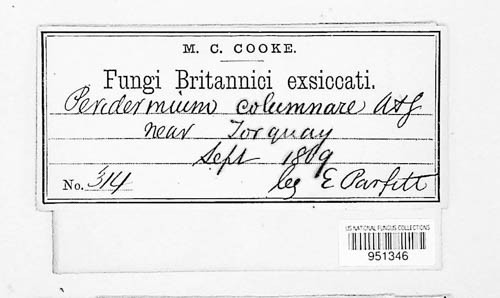 M. C. COOKE.
Fungi Britannici exsiccati.
Peridermium columnare A&S
near Torquay
Sept 1869
No. 314 leg E Parfitt
US NATIONAL FUNGUS COLLECTIONS
951346